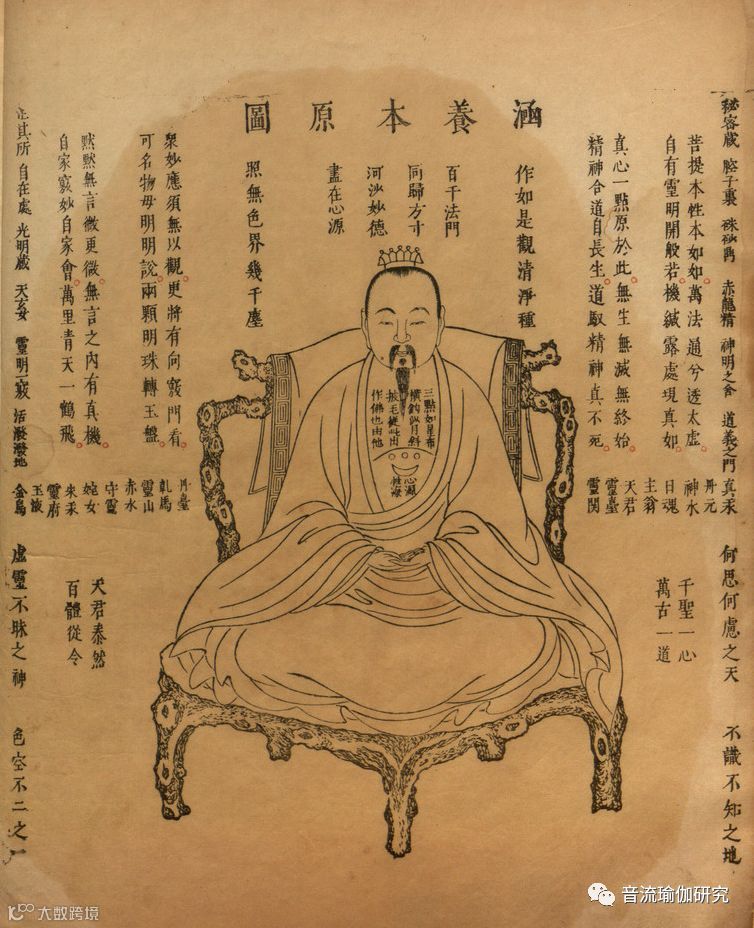 涵養本原圖
秘密藏 腔子裏 赤龍精 神明之舍 道義之門
菩提本性本如如。萬法通兮透太虛。
自有靈明開般若。機緘露處現真如。
真心一點原於此。無生無滅無終始。
精神合道自長生。道馭精神真不死。
作如是觀清淨種
百千法門
同歸方寸
河沙妙德
盡在心源
照無色界幾千塵
衆妙應須無以觀。更將有向竅門看。
可名物母明明說。兩顆明珠轉玉盤。
默默無言微更微。無言之內有真機。
自家竅妙自家會。萬里青天一鶴飛。
止其所 自在處 光明藏 天玄女 靈明一竅 活潑潑地
三點如星布
橫鈎似月斜
披毛從此出
作佛也由他
心源
性海
真汞
丹元
神水
日魂
主翁
天君
靈臺
靈関
丹臺
靈山
赤水
守靈
姹女
朱汞
靈府
玉液
金烏
何思何慮之天
不識不知之地
千聖一心
萬古一道
天君泰然
百體從令
虛靈不昧之神
色空不二之一
音流瑜伽研究
大数跨境